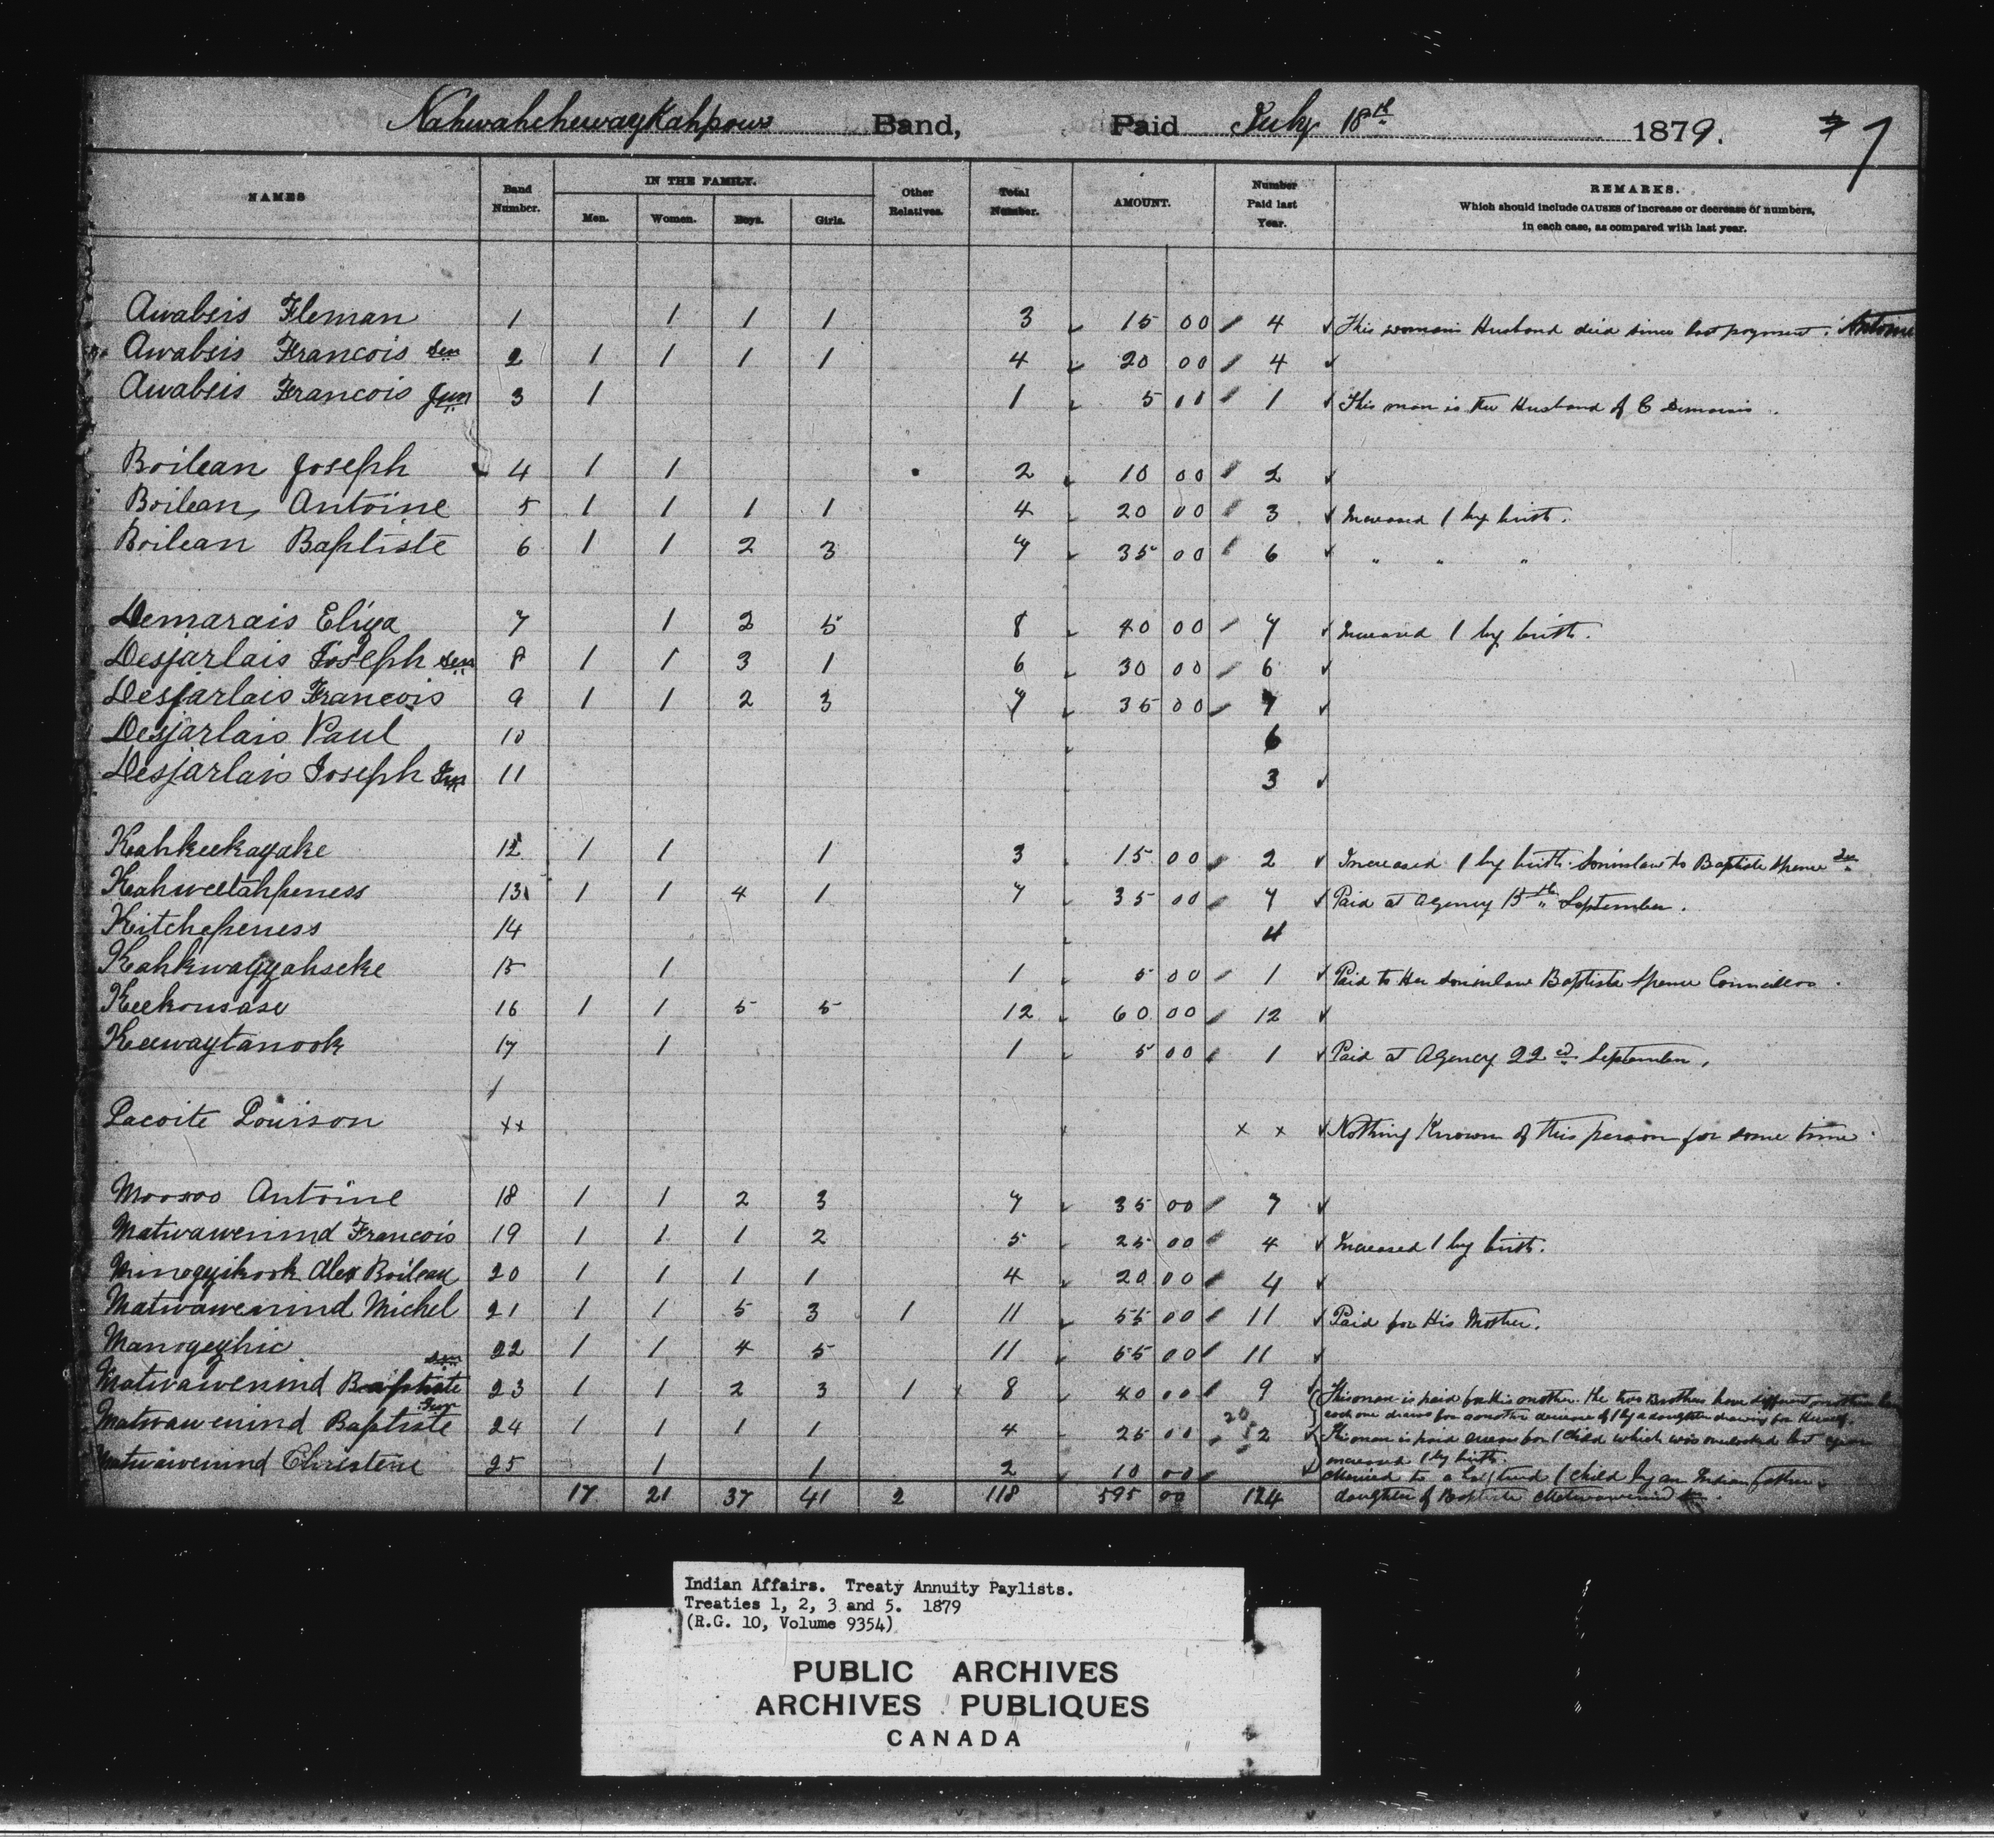 Nahwahchewaykahpows Band, Paid July 18th 1879. 7
NAMES
Band Number.
IN THE FAMILY.
Men. Women. Boys. Girls.
Other Relatives.
Total Number.
AMOUNT.
Number Paid last Year.
REMARKS.
Which should include CAUSES of increase or decrease of numbers,
in each case, as compared with last year.
Awabsis Fleman 1 1 1 1 3 15 00 4 This womans Husband died since last payment. Antoine
Awabsis Francois Sen 2 1 1 1 1 4 20 00 4
Awabsis Francois Jun 3 1 1 5 00 1 This man is the Husband of C Demarais.
Boilean Joseph 4 1 1 2 10 00 2
Boilean, Antoine 5 1 1 1 1 4 20 00 3 Increased 1 by birth.
Boilean Baptiste 6 1 1 2 3 7 35 00 6 " " "
Demarais Eliza 7 1 2 5 8 40 00 7 Increased 1 by birth.
Desjarlais Joseph Sen 8 1 1 3 1 6 30 00 6
Desjarlais Francois 9 1 1 2 3 7 35 00 7
Desjarlais Paul 10 6
Desjarlais Joseph Jun 11 3
Kahkeekayake 12 1 1 1 3 15 00 2 Increased 1 by birth. Soninlaw to Baptiste Spence Sen
Kahweetahpeness 13 1 1 4 1 7 35 00 7 Paid at Agency 15th September.
Kitchepeness 14 4
Kahkwayyahseke 15 1 1 5 00 1 Paid to Her Soninlaw Baptiste Spence Councillor.
Keekousase 16 1 1 5 5 12 60 00 12
Keewaytanook 17 1 1 5 00 1 Paid at Agency 22d September.
Lacoite Louison xx x x Nothing Known of this person for some time.
Moosoo Antoine 18 1 1 2 3 7 35 00 7
Matwawenind Francois 19 1 1 1 2 5 25 00 4 Increased 1 by birth.
Minogezikook Alex Boileau 20 1 1 1 1 4 20 00 4
Matwawenind Michel 21 1 1 5 3 1 11 55 00 11 Paid for His Mother.
Manogezhic 22 1 1 4 5 11 55 00 11
Matwawenind Baptiste Sen 23 1 1 2 3 1 8 40 00 9 This man is paid for his mother. The two Brothers have different mothers
each one draws for a mother decrease of 1 by a daughter drawing for Herself.
Matwawenind Baptiste Jun 24 1 1 1 1 4 25 00 20 5 2 This man is paid arrears for 1 child which was overlooked last year
increased 1 by birth.
Matwawenind Christene 25 1 1 2 10 00 Married to a 1 child by an Indian father.
17 21 37 41 2 118 595 00 124 daughter of Baptiste Matwawenind Sen.
Indian Affairs. Treaty Annuity Paylists.
Treaties 1, 2, 3 and 5. 1879
(R.G. 10, Volume 9354)
PUBLIC ARCHIVES
ARCHIVES PUBLIQUES
CANADA